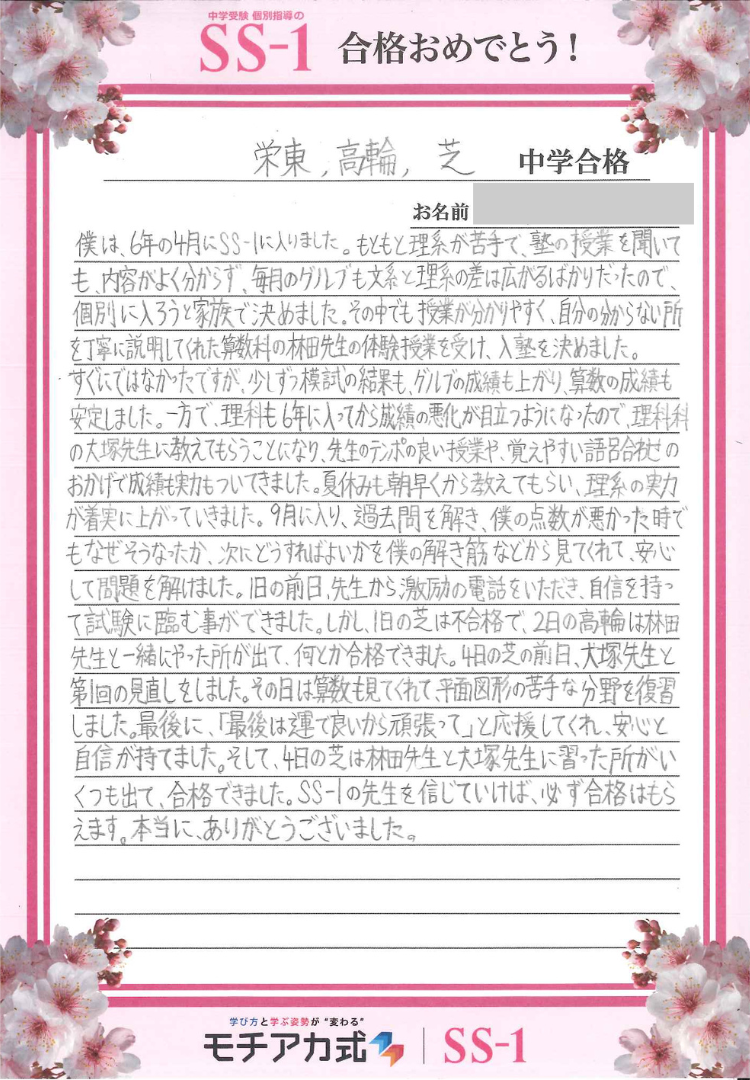 中学受験 個別指導の
SS-1 合格おめでとう!
栄東, 高輪, 芝 中学合格
お名前
僕は、6年の4月にSS-1に入りました。もともと理系が苦手で、塾の授業を聞いて
も、内容がよく分からず、毎月のグルブも文系と理系の差は広がるばかりだったので、
個別に入ろうと家族で決めました。その中でも授業が分かりやすく、自分の分からない所
を丁寧に説明してくれた算数科の林田先生の体験授業を受け、入塾を決めました。
すぐにではなかったですが、少しずつ模試の結果も、グルブの成績も上がり、算数の成績も
安定しました。一方で、理科も6年に入ってから成績の悪化が目立つようになったので、理科科
の大塚先生に教えてもらうことになり、先生のテンポの良い授業や、覚えやすい語呂合わせの
おかげで成績も実力もついてきました。夏休みも朝早くから教えてもらい、理系の実力
が着実に上がっていきました。9月に入り、過去問を解き、僕の点数が悪かった時で
もなぜそうなったか、次にどうすればよいかを僕の解き筋などから見てくれて、安心
して問題を解けました。1日の前日、先生から激励の電話をいただき、自信を持っ
て試験に臨む事ができました。しかし、1日の芝は不合格で、2日の高輪は林田
先生と一緒にやった所が出て、何とか合格できました。4日の芝の前日、大塚先生と
第1回の見直しをしました。その日は算数も見てくれて、平面図形の苦手な分野を復習
しました。最後に、「最後は運で良いから頑張って」と応援してくれ、安心と
自信が持てました。そして、4日の芝は林田先生と大塚先生に習った所がい
くつも出て、合格できました。SS-1の先生を信じていけば、必ず合格はもら
えます。本当に、ありがとうございました。
学び方と学ぶ姿勢が"変わる"
モチアカ式 SS-1